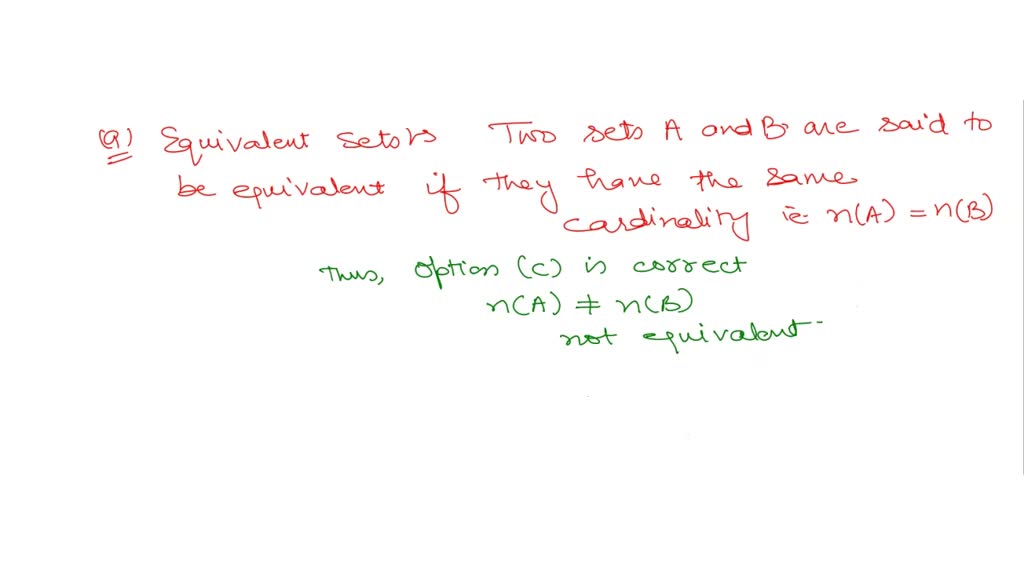 (a) Equivalent sets Two sets A and B are said to
be equivalent if they have the same
cardinality ie n(A) = n(B)
Thus, option (C) is correct
n(A) ≠ n(B)
not equivalent